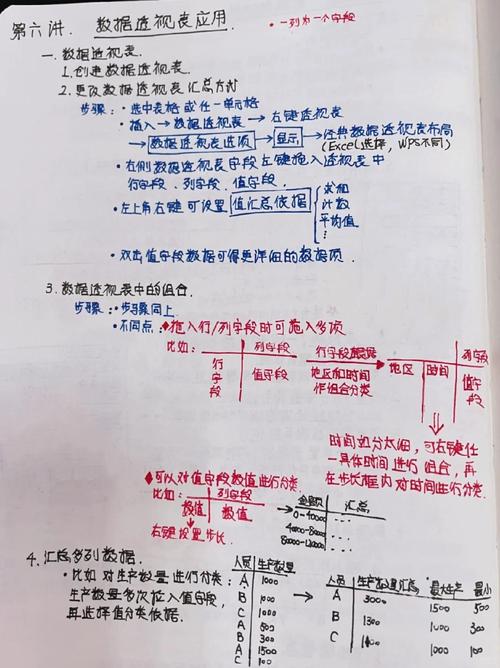 第六讲. 数据透视表应用.
• 一列为一个字段
一. 数据透视表.
1. 创建数据透视表.
2. 更改数据透视表汇总方式
步骤: • 选中表格或任一单元格
• 插入→数据透视表→右键透视表
→数据透视表选项→显示→经典数据透视表布局
(Excel选择, WPS不同)
• 右侧数据透视表字段左键拖入透视表中
行字段、列字段、值字段.
• 左上角右键可设置 值汇总依据
求和
计数
平均值
⋮
• 双击值字段数据可得更详细的数据项.
3. 数据透视表中的组合.
步骤: • 步骤同上.
• 不同点: 拖入行/列字段时可拖入多项
比如: 列字段
行字段 值字段
行字段数据
地区和时间
作组合分类
列字段
地区 时间 值字段
时间如分太细, 可右键任
一具体时间进行组合, 再
在步长框内对时间进行分类.
可以对值字段数值进行分类.
比如: 列字段
数值 数值
右键设置步长.
金额 汇总
0-40000 ...
40000-80000 ...
80000-120000 ...
4. 汇总多列数据.
• 比如对生产数量进行分类:
生产数量多次拉入值字段,
再选择值分类依据.
人员 生产数量
A 1000
B 1000
C 1000
A 500
B 300
A 1500
C 100
人员 生产数量汇总 最大生产 最小
A 3000 1500 500
B 1300 1000 300
C 1000 100